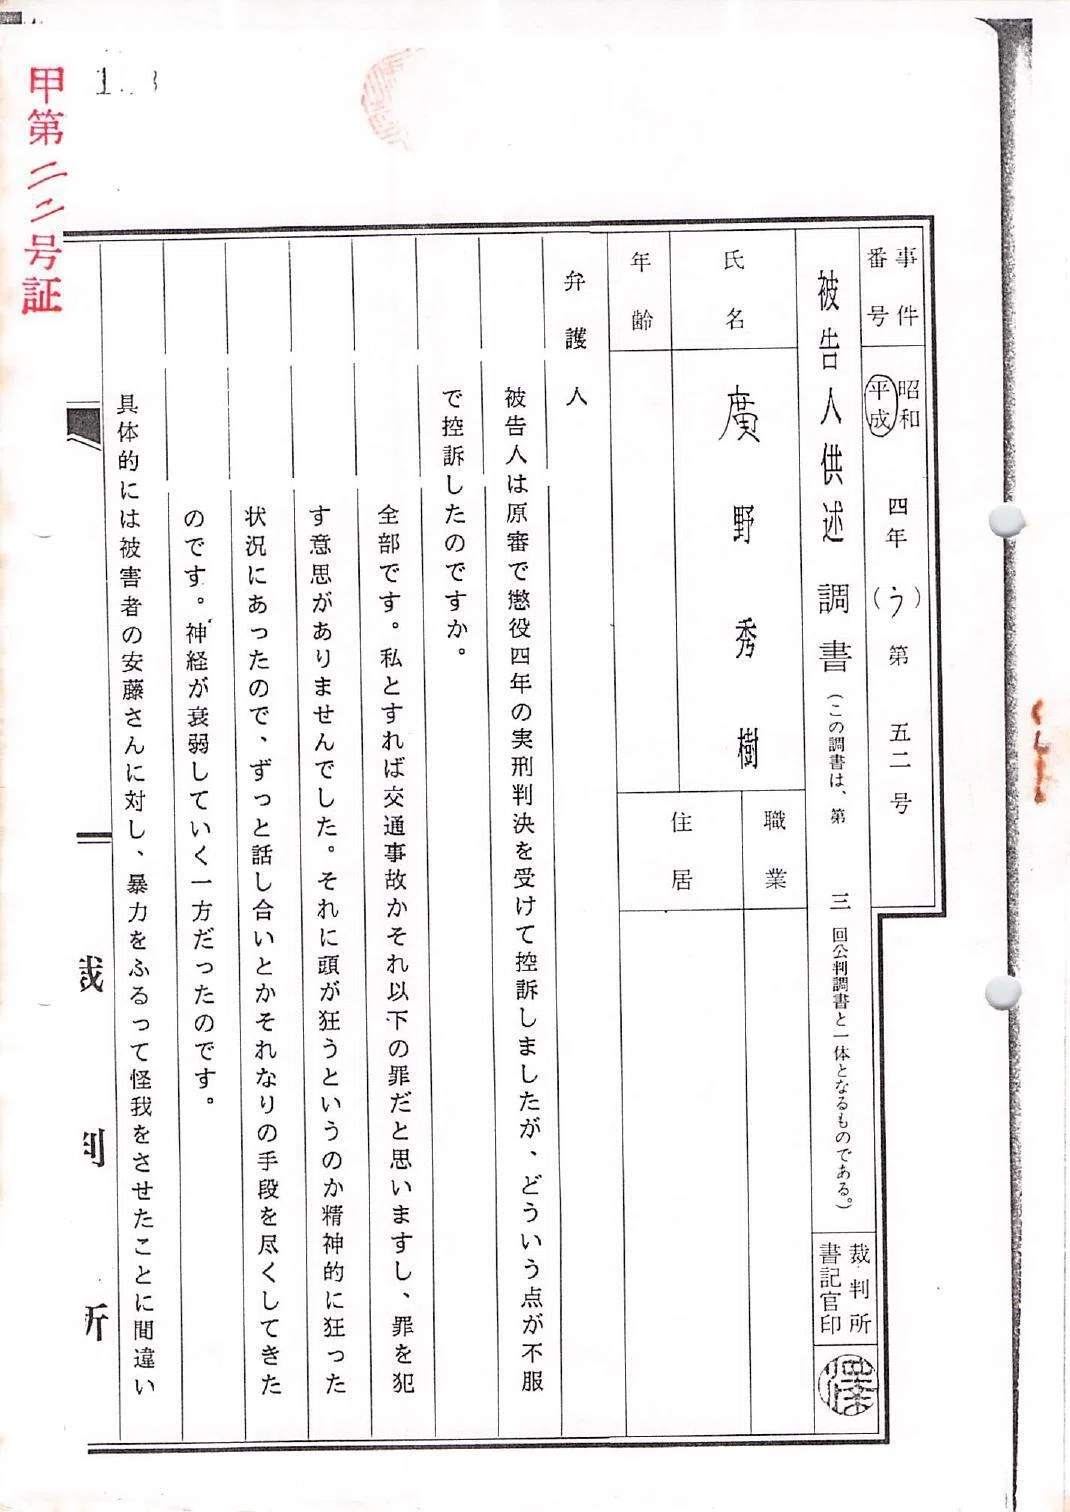 甲第二二号証
事件番号
昭和
平成
四年(う)第五二号
被告人供述調書(この調書は、第三回公判調書と一体となるものである。)
裁判所書記官印
氏名
廣野秀樹
職業
年齢
住居
弁護人
被告人は原審で懲役四年の実刑判決を受けて控訴しましたが、どういう点が不服
で控訴したのですか。
全部です。私とすれば交通事故かそれ以下の罪だと思いますし、罪を犯
す意思がありませんでした。それに頭が狂うというのか精神的に狂った
状況にあったので、ずっと話し合いとかそれなりの手段を尽くしてきた
のです。神経が衰弱していく一方だったのです。
具体的には被害者の安藤さんに対し、暴力をふるって怪我をさせたことに間違い
裁判所